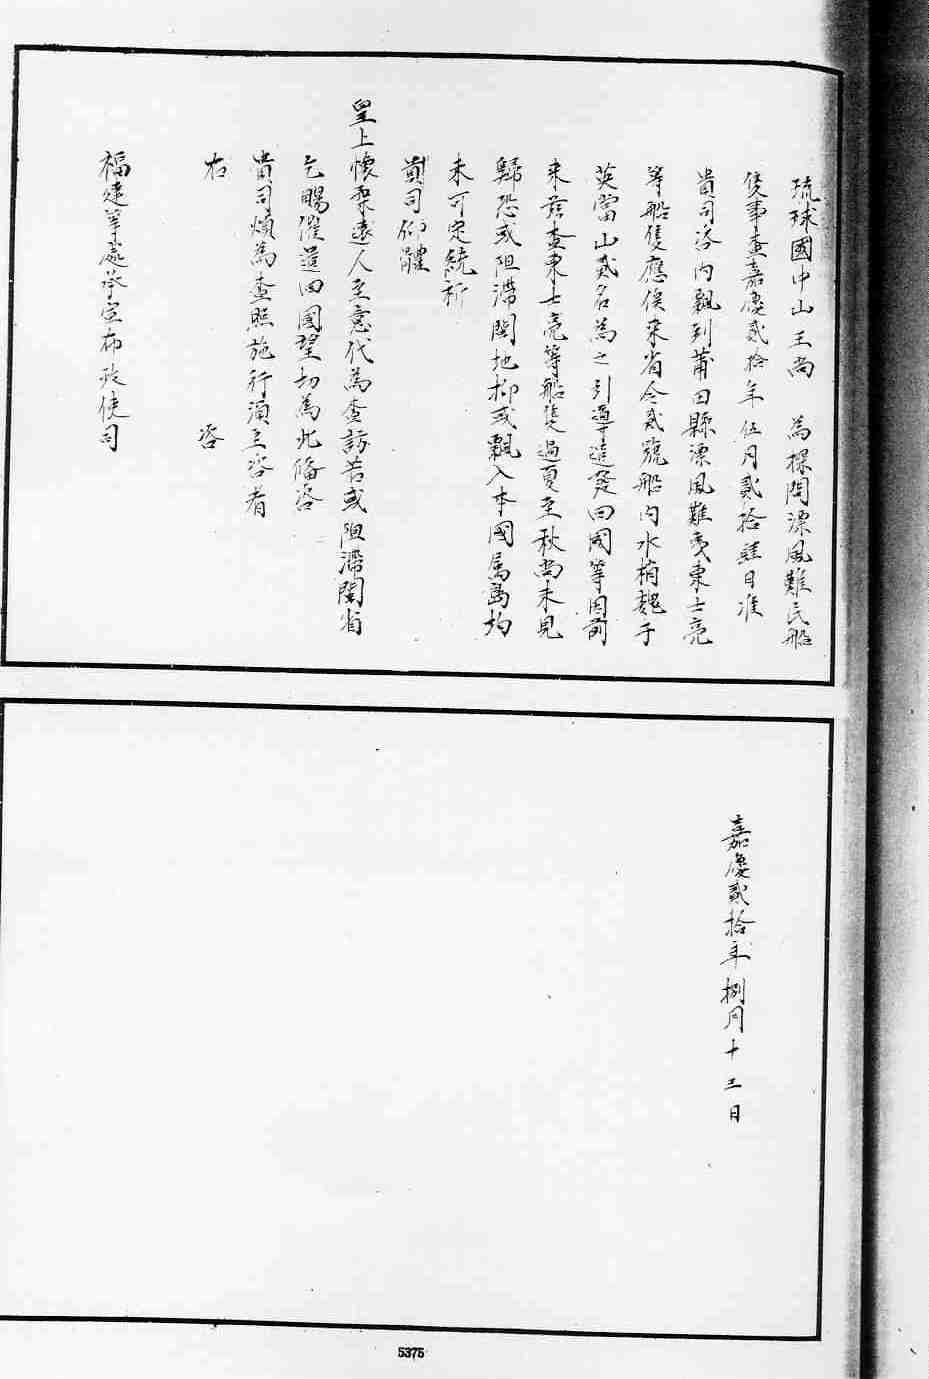 琉球國中山王尚　為探問漂風難民船
隻事查嘉慶貳拾年伍月貳拾肆日准
貴司咨內飄到莆田縣漂風難夷東士亮
等船隻應俟來省令貳號船內水梢魏子
英當山貳名為之引導遣發回國等因前
來茲查東士亮等船隻過夏至秋尚未見
歸恐或阻滯閩地抑或飄入本國屬島均
未可定統祈
貴司仰體
皇上懷柔遠人至意代為查訪若或阻滯閩省
乞賜催遣回國望切為此備咨
貴司煩為查照施行須至咨者
右　咨
福建等處承宣布政使司
嘉慶貳拾年捌月十三日
5375